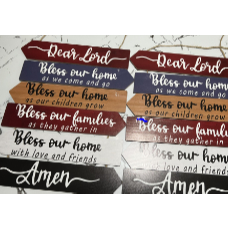 Dear Lord
Bless our home
as we come and go
Bless our home
as our children grow
Bless our families
as they gather in
Bless our home
with love and friends
Amen
Dear Lord
Bless our home
as we come and go
Bless our home
as our children grow
Bless our families
as they gather in
Bless our home
with love and friends
Amen